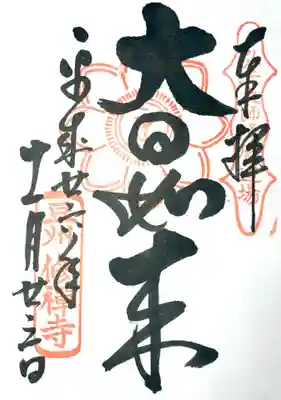 奉拝
大日如来
平成廿六年
十一月廿三日
豆州修禪寺